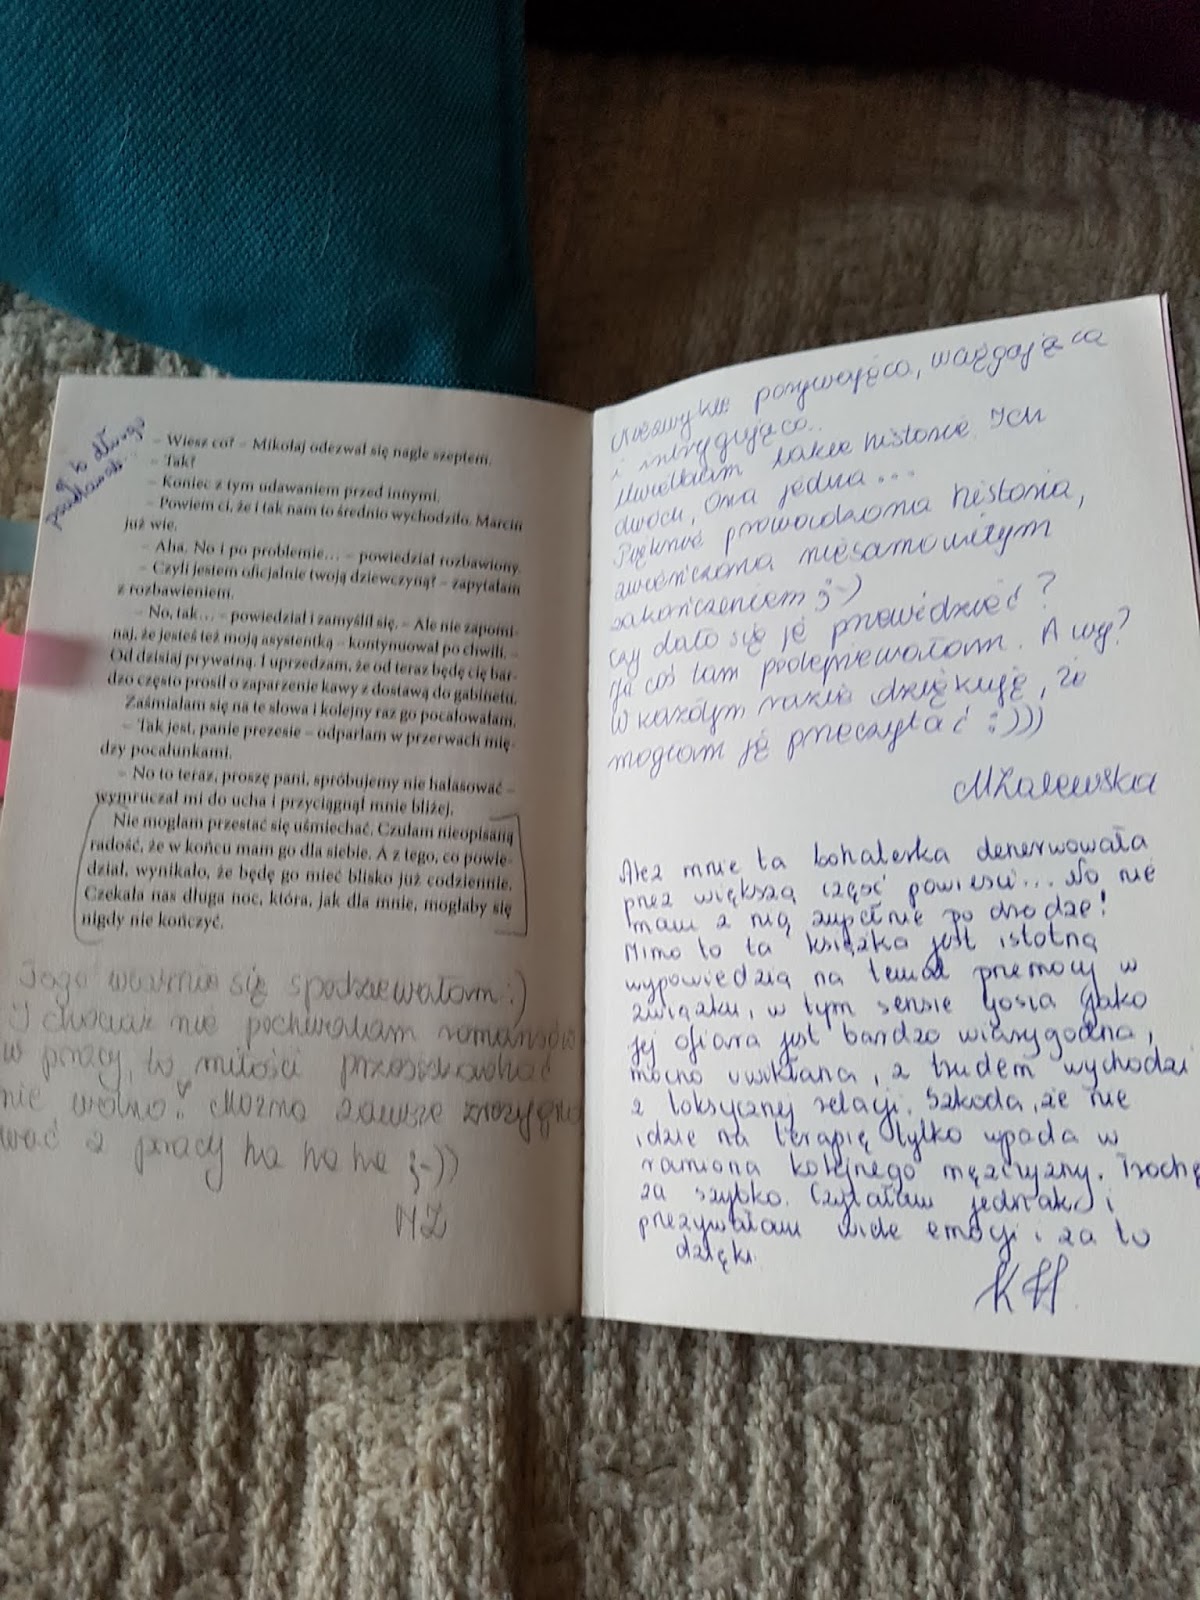 – Wiesz co? – Mikołaj odezwał się nagle szeptem.
– Tak?
– Koniec z tym udawaniem przed innymi.
– Powiem ci, że i tak nam to średnio wychodziło. Marcin
już wie.
– Aha. No i po problemie… – powiedział rozbawiony.
– Czyli jestem oficjalnie twoją dziewczyną? – zapytałam
z rozbawieniem.
– No, tak… – powiedział i zamyślił się. – Ale nie zapomi-
naj, że jesteś też moją asystentką – kontynuował po chwili. –
Od dzisiaj prywatną. I uprzedzam, że od teraz będę cię bar-
dzo często prosił o zaparzenie kawy z dostawą do gabinetu.
Zaśmiałam się na te słowa i kolejny raz go pocałowałam.
– Tak jest, panie prezesie – odparłam w przerwach mię-
dzy pocałunkami.
– No to teraz, proszę pani, spróbujemy nie hałasować –
wymruczał mi do ucha i przyciągnął mnie bliżej.
Nie mogłam przestać się uśmiechać. Czułam nieopisaną
radość, że w końcu mam go dla siebie. A z tego, co powie-
dział, wynikało, że będę go mieć blisko już codziennie.
Czekała nas długa noc, która, jak dla mnie, mogłaby się
nigdy nie kończyć.
Tego właśnie się spodziewałam :)
I chociaż nie pochwalam romansów
w pracy, to miłości przeszkadzać
nie wolno! Można zawsze zrezygno
wać z pracy ha ha ha ;-))
MZ
Niezwykle porywająca, wciągająca
i intrygująca..
Uwielbiam takie historie. Ich
dwóch, Ona jedna...
Pięknie prowadzona historia,
zwieńczona niesamowitym
zakończeniem ;-)
czy dało się je przewidzieć?
Ja coś tam podejrzewałam. A wy?
W każdym razie dziękuję, że
mogłam ją przeczytać :)))
MZalewska
Ależ mnie ta bohaterka denerwowała
przez większą część powieści... No nie
mam z nią zupełnie po drodze!
Mimo to ta książka jest istotną
wypowiedzią na temat przemocy w
związku, w tym sensie Gosia jako
jej ofiara jest bardzo wiarygodna,
mocno uwikłana, z trudem wychodzi
z toksycznej relacji. Szkoda, że nie
idzie na terapię tylko wpada w
ramiona kolejnego mężczyzny. Trochę
za szybko. Czytałam jednak i
przeżywałam wiele emocji i za to
dzięki.
KH